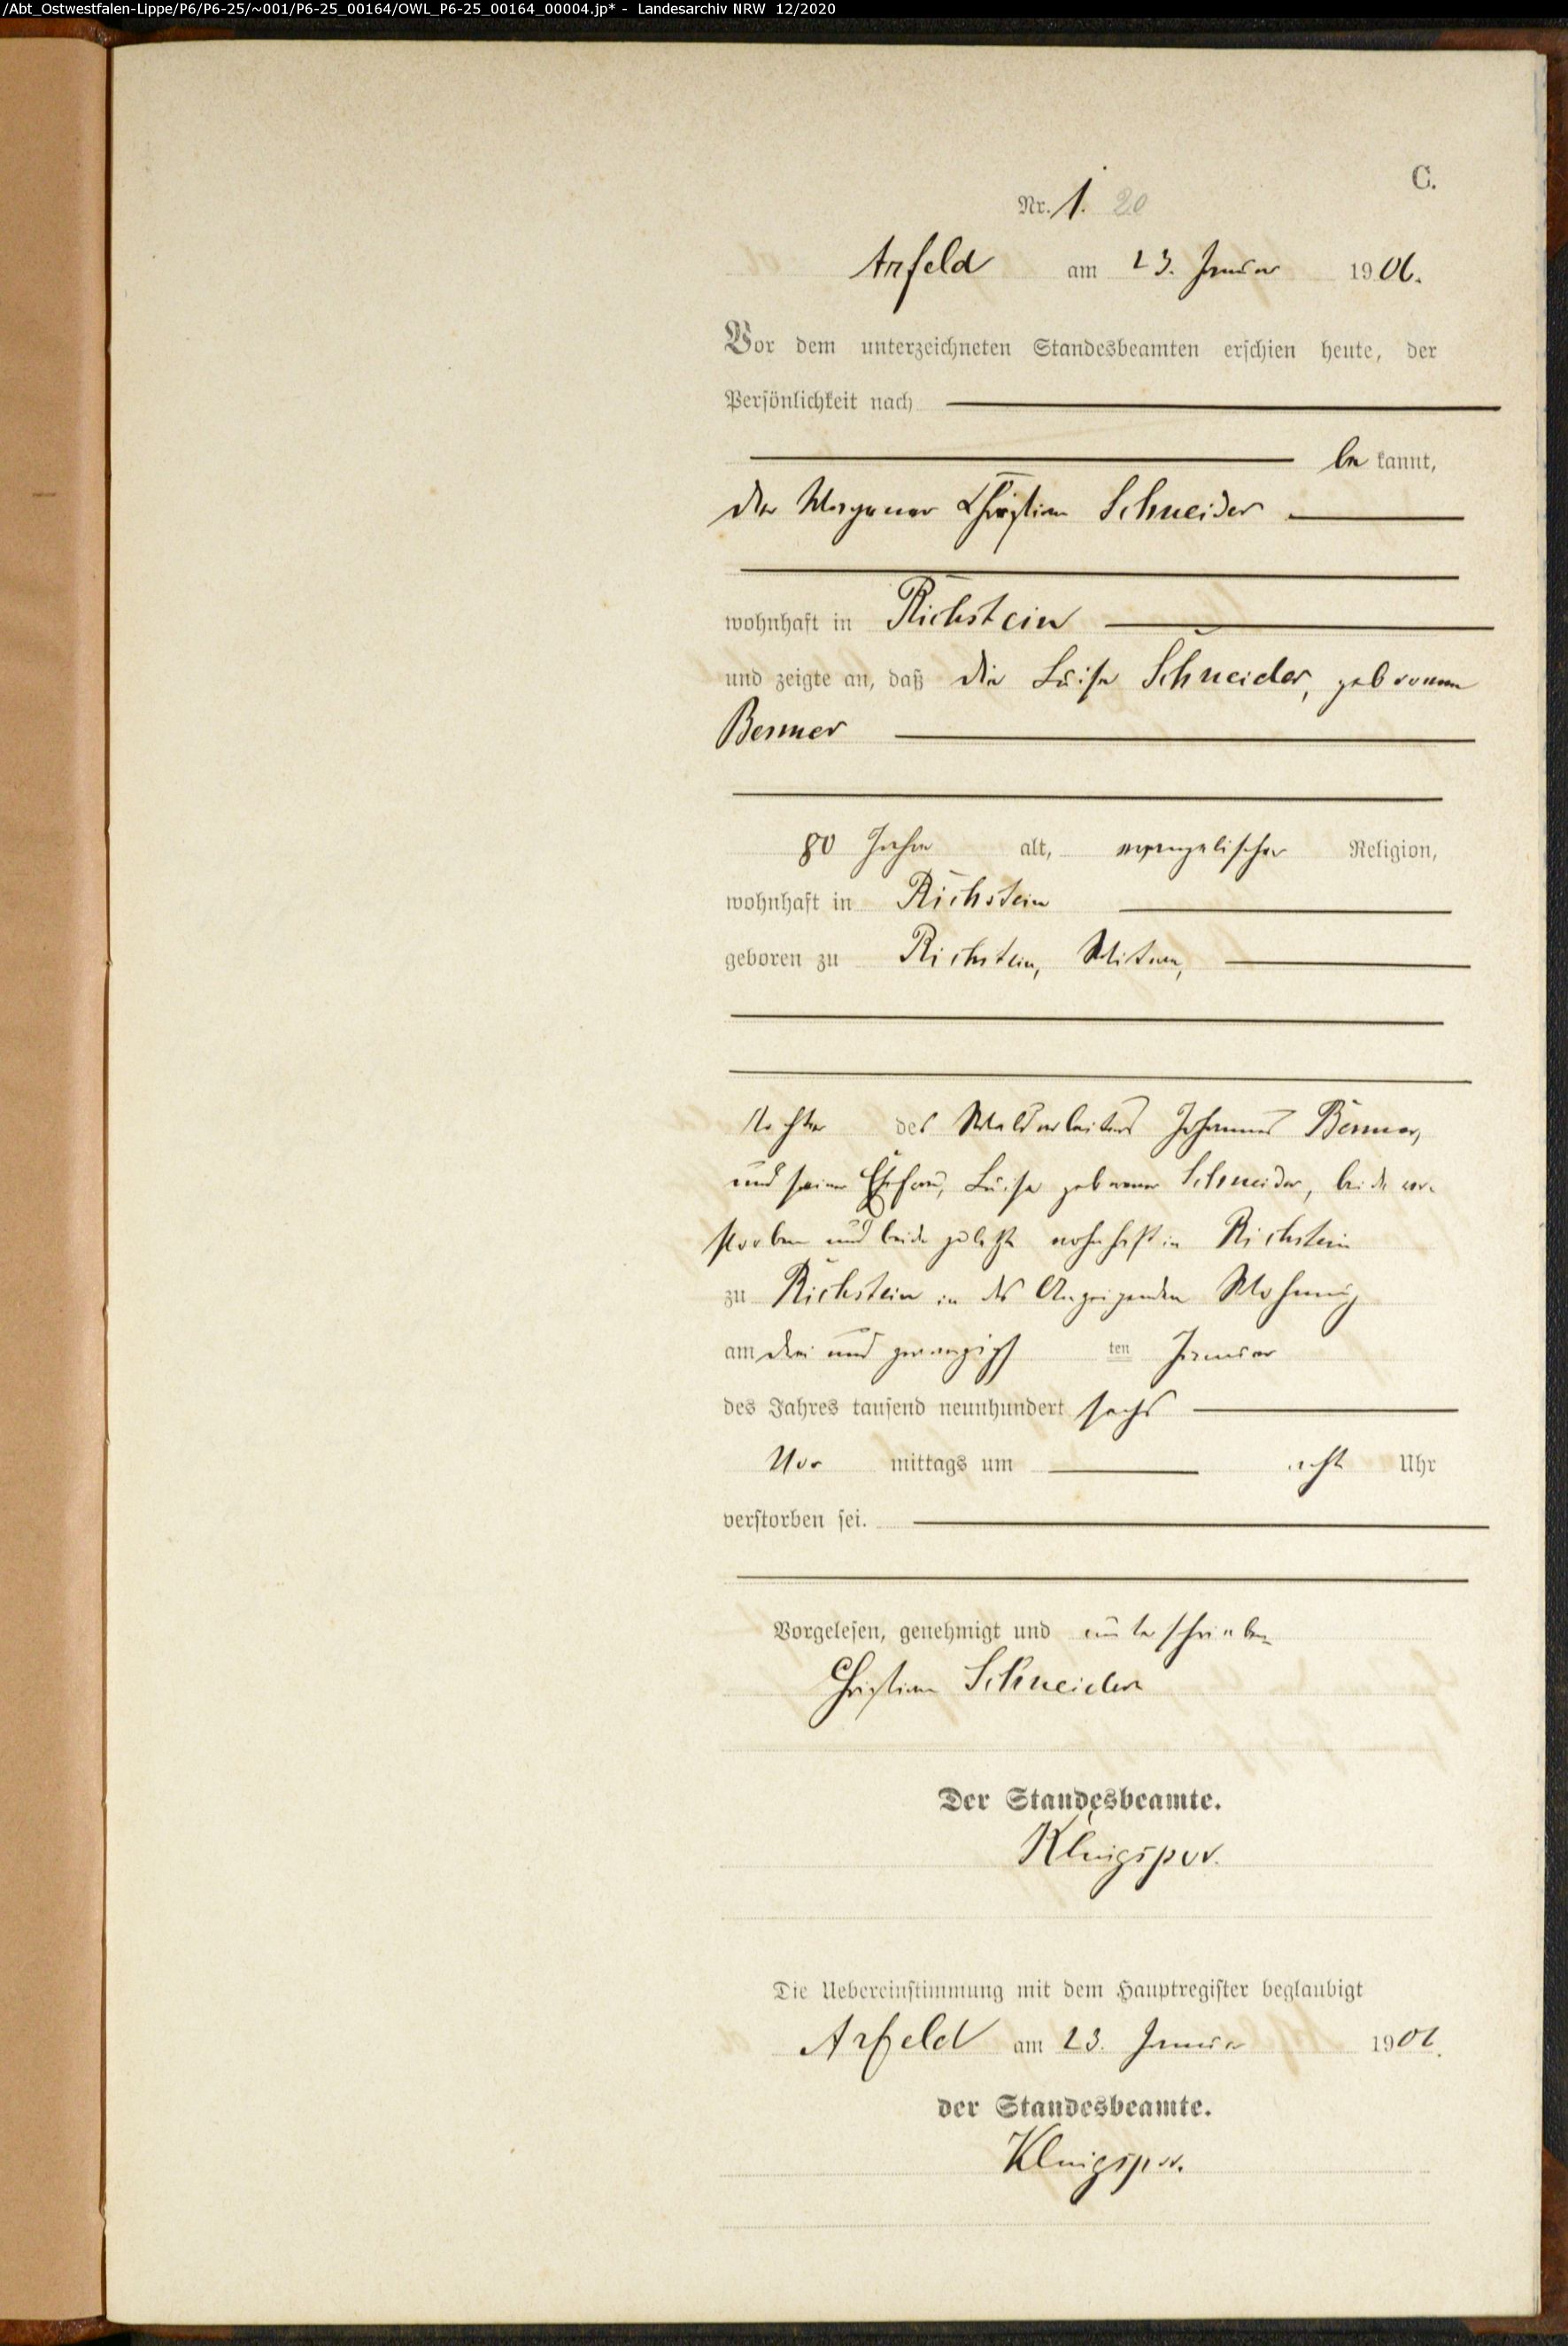 /Abt_Ostwestfalen-Lippe/P6/P6-25/~001/P6-25_00164/OWL_P6-25_00164_00004.jp* - Landesarchiv NRW 12/2020
C.
Nr. 1. 20
Arfeld am 23. Januar 1906.
Vor dem unterzeichneten Standesbeamten erschien heute, der
Persönlichkeit nach
be kannt,
der Christian Schneider
wohnhaft in Richstein
und zeigte an, daß die Luise Schneider, geborene
Benner
80 Jahre alt, evangelischer Religion,
wohnhaft in Richstein
geboren zu Richstein, Witwe,
Tochter des Waldarbeiters Johannes Benner,
und seiner Ehefrau, Luise geborener Schneider, beide ver-
storben und beide zuletzt wohnhaft in Richstein
zu Richstein in des Anzeigenden Wohnung
am drei und zwanzigsten Januar
des Jahres tausend neunhundert sechs
Vor mittags um acht Uhr
verstorben sei.
Vorgelesen, genehmigt und unterschrieben
Christian Schneider
Der Standesbeamte.
Klingspor.
Die Uebereinstimmung mit dem Hauptregister beglaubigt
Arfeld am 23. Januar 1906.
der Standesbeamte.
Klingspor.